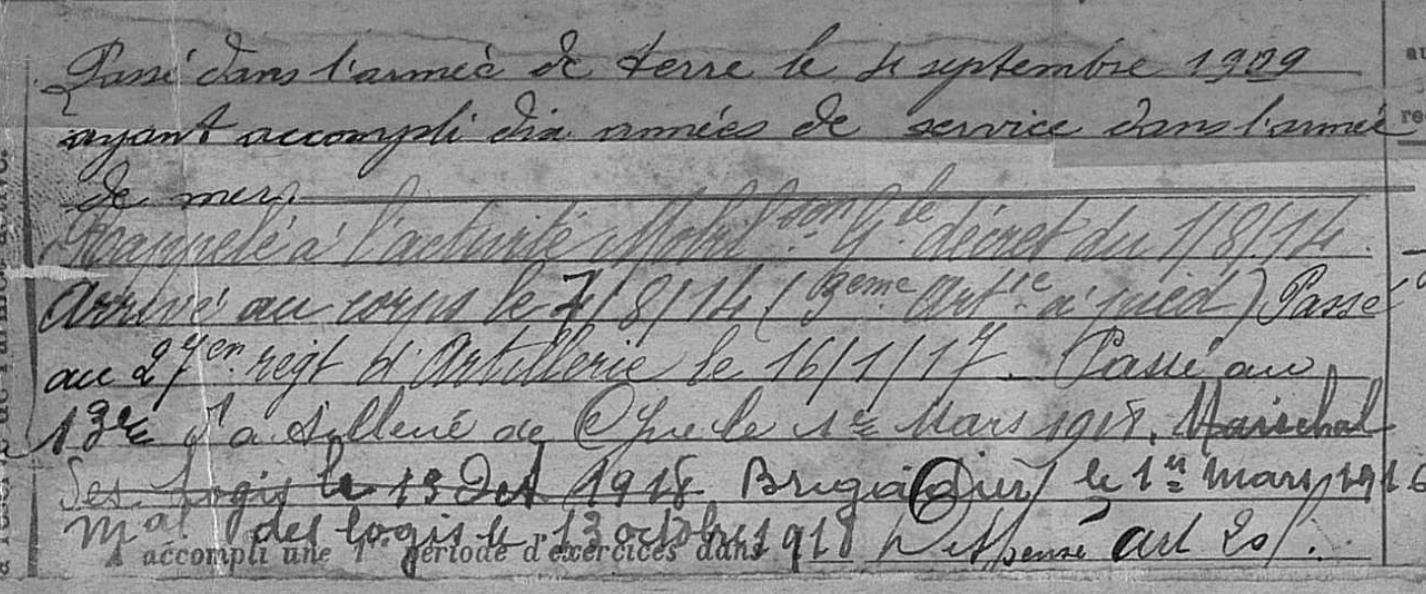 Passé dans l'armée de terre le 4 septembre 1909
ayant accompli dix années de service dans l'armée
de mer.
Rappelé à l'activité Mobil.son G.le décret du 1/8/14.
Arrivé au corps le 7/8/14 (3eme Art.ie à pied) Passé
au 27en. régt d'Artillerie le 16/1/17. Passé au
13e d'artillerie de Cgne le 1er Mars 1918. Maréchal
des logis le 13 Oct 1918 Brigadier le 1er mars 191
Mal des logis le 13 octobre 1918 Dispensé art 20
A accompli une 1re période d'exercices dans